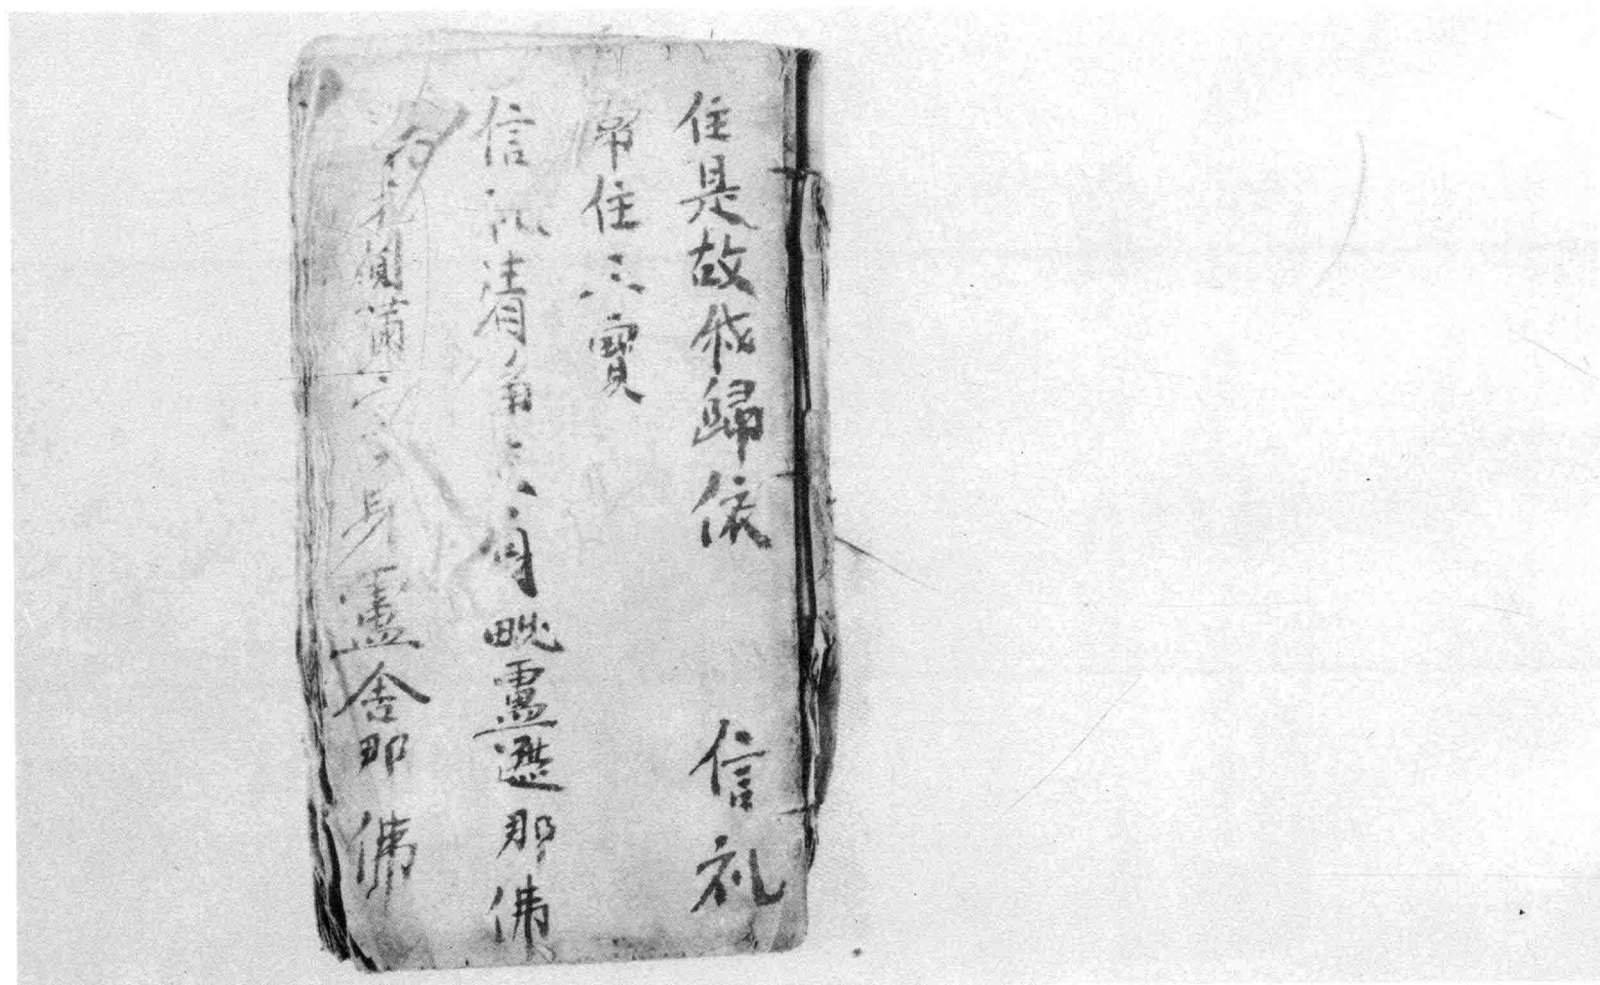 住是故我歸依 信礼
常住三寶
信礼清淨法身毗盧遮那佛
身盧舍那佛